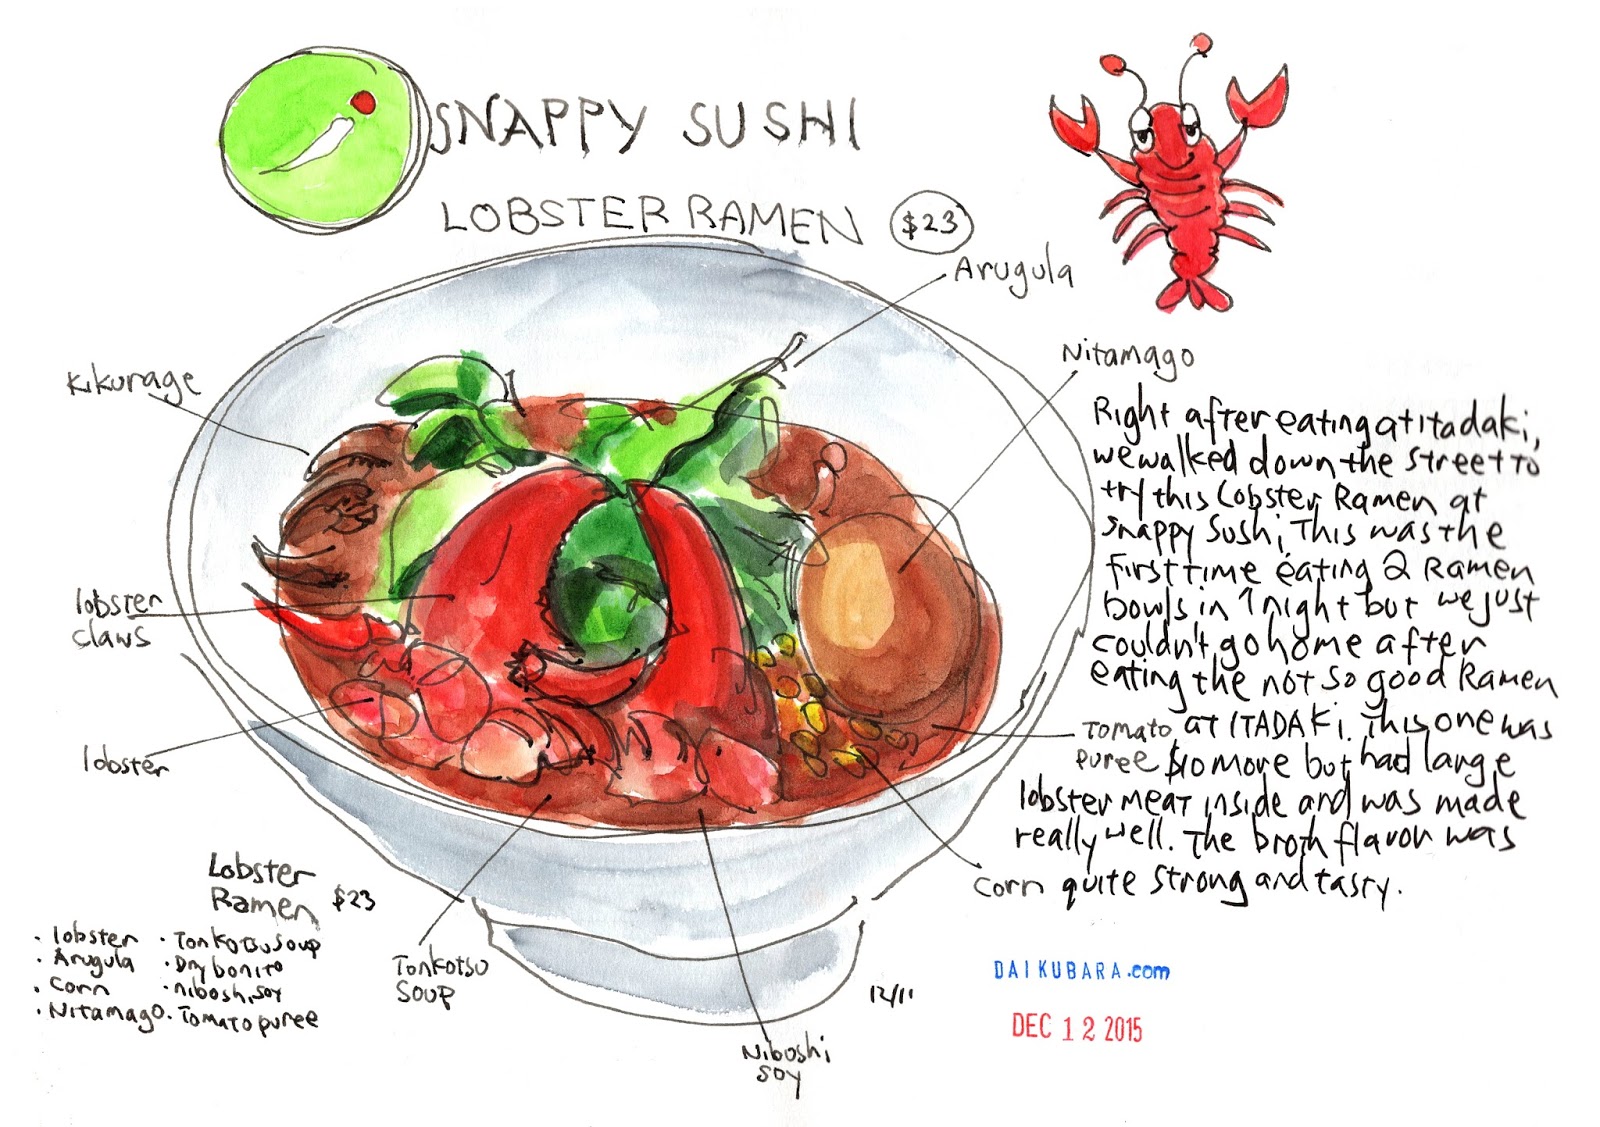 SNAPPY SUSHI
LOBSTER RAMEN $23
Arugula
Nitamago
Kikurage
lobster
claws
lobster
Right after eating at itadaki,
we walked down the street to
try this Lobster Ramen at
Snappy Sushi, This was the
first time eating 2 Ramen
bowls in 1 night but we just
couldn't go home after
eating the not so good Ramen
at ITADAKi. This one was
$10 more but had large
lobster meat inside and was made
really well. The broth flavor was
quite strong and tasty.
Tomato
puree
corn
Tonkotsu
soup
Niboshi
soy
Lobster
Ramen $23
· lobster · Tonkotsu soup
· Arugula · Dry bonito
· Corn · niboshi soy
· Nitamago · Tomato puree
12/11
DAIKUBARA.com
DEC 12 2015